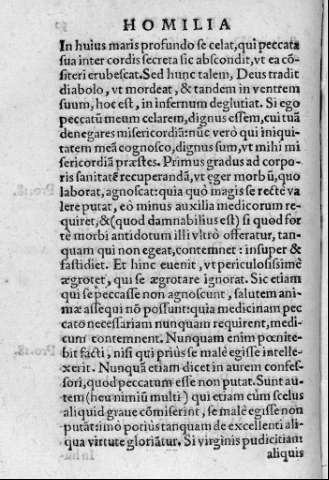 HOMILIA
In huius maris profundo se celat, qui peccata
sua inter cordis secreta sic abscondit, vt ea cō-
fiteri erubescat. Sed hunc talem, Deus tradit
diabolo, vt mordeat, & tandem in ventrem
suum, hoc est, in infernum deglutiat. Si ego
peccatū meum celarem, dignus essem, cui tuā
denegares misericordiā: nūc verò qui iniqui-
tatem meā cognosco, dignus sum, vt mihi mi
sericordiā præstes. Primus gradus ad corpo-
ris sanitatē recuperandā, vt eger morbū, quo
laborat, agnoscat: quia quò magis se rectè va
lere putat, eò minus auxilia medicorum re-
quiret, & (quod damnabilius est) si quod for
tè morbi antidotum illi vltrò offeratur, tan-
quam qui non egeat, contemnet: insuper &
fastidiet. Et hinc euenit, vt periculosissimè
ægrotet, qui se ægrotare ignorat. Sic etiam
qui se peccasse non agnoscunt, salutem ani-
mæ assequi nō possunt: quia medicinam pec
cato necessariam nunquam requirent, medi-
cum contemnent. Nunquam enim pœnite-
bit facti, nisi qui priùs se malè egisse intelle-
xerit. Nunquā etiam dicet in aurem confes-
sori, quod peccatum esse non putat. Sunt au-
tem (heu nimiū multi) qui etiam cùm scelus
aliquod graue cōmiserint, se malè egisse non
putāt: imò potius tanquam de excellenti ali-
qua virtute gloriātur. Si virginis pudicitiam
aliquis